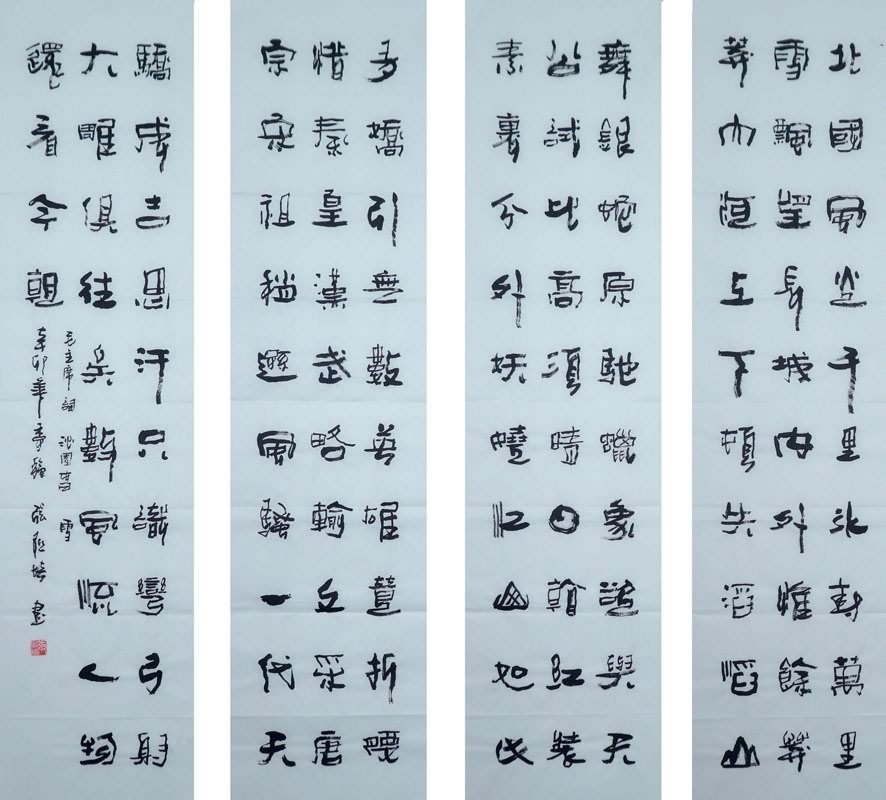 北國風光千里冰封萬里
雪飄望長城内外惟餘莽
莽大河上下頓失滔滔山
舞銀蛇原馳蠟象欲與天
公試比高須晴日看紅裝
素裹分外妖嬈江山如此
多嬌引無數英雄競折腰
惜秦皇漢武略輸文采唐
宗宋祖稍遜風騷一代天
驕成吉思汗只識彎弓射
大雕俱往矣數風流人物
還看今朝
毛主席詞 沁園春 雪
辛卯年 張 書